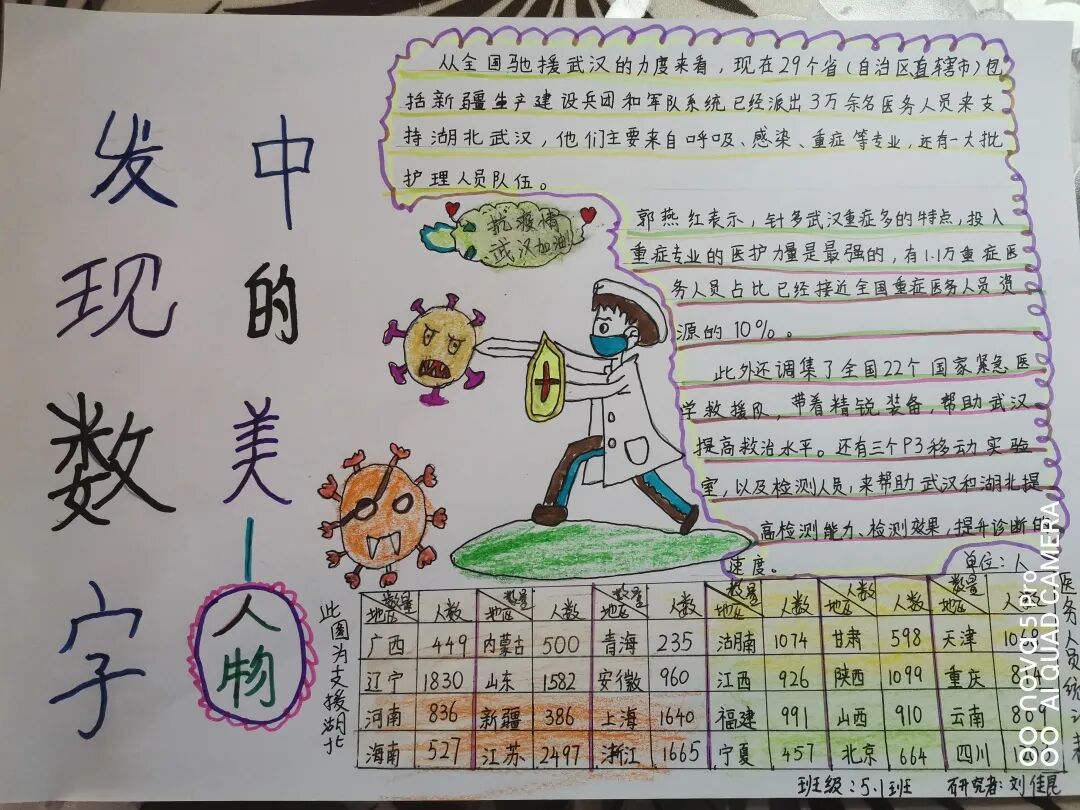 发现数字
中的美—人物
从全国驰援武汉的力度来看，现在29个省(自治区直辖市)包
括新疆生产建设兵团和军队系统已经派出3万余名医务人员来支
持湖北武汉，他们主要来自呼吸、感染、重症等专业，还有一大批
护理人员队伍。
抗疫情
武汉加油
郭燕红表示，针多武汉重症多的特点，投入
重症专业的医护力量是最强的，有1.1万重症医
务人员占比已经接近全国重症医务人员资
源的10%。
此外还调集了全国22个国家紧急医
学救援队，带着精锐装备，帮助武汉
提高救治水平。还有三个P3移动实验
室，以及检测人员，来帮助武汉和湖北提
高检测能力、检测效果，提升诊断的
速度。
单位：人
此图为支援湖北
数量 地区 人数 数量 地区 人数 数量 地区 人数 数量 地区 人数 数量 地区 人数 数量 地区 人数
广西 449 内蒙古 500 青海 235 湖南 1074 甘肃 598 天津
辽宁 1830 山东 1582 安徽 960 江西 926 陕西 1099 重庆
河南 836 新疆 386 上海 1640 福建 991 山西 910 云南 809
海南 527 江苏 2497 浙江 1665 宁夏 457 北京 664 四川
医务人员统计表
班级：5.1班 研究者：刘佳昆
nova 5 Pro
AI QUAD CAMERA